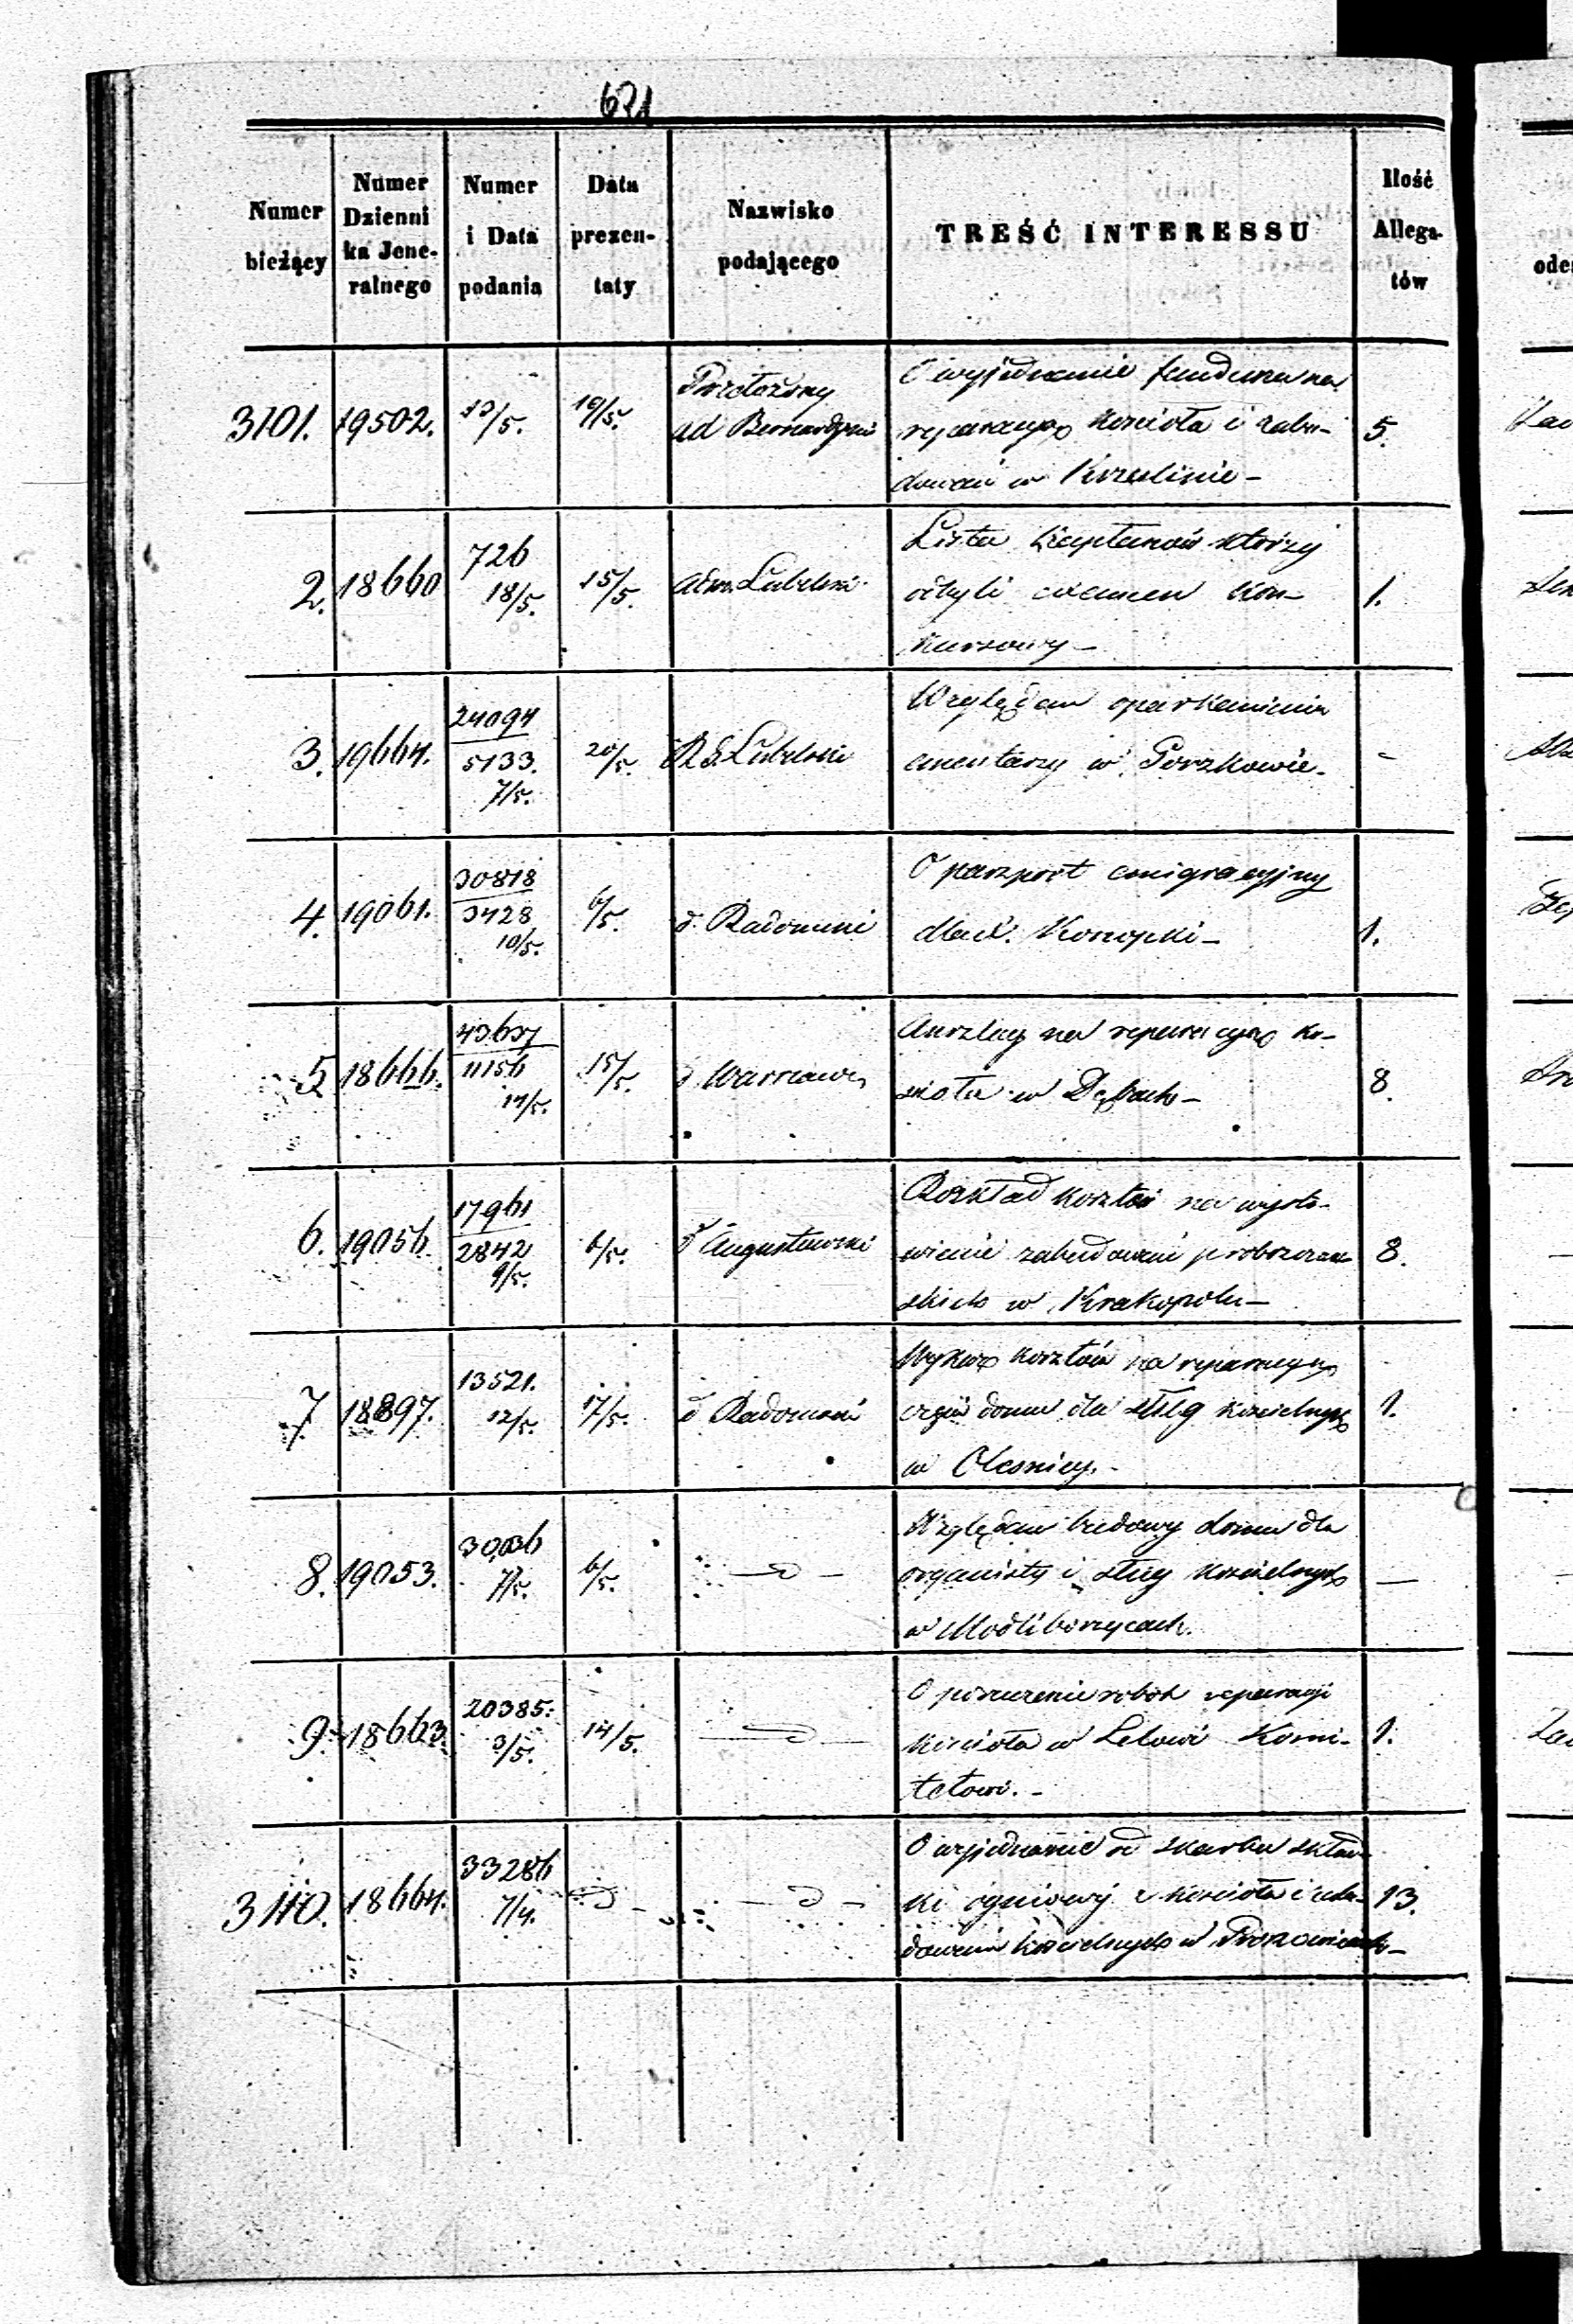 621
Numer bieżący
Numer Dzienni ka Jene- ralnego
Numer i Data podania
Data prezen- taty
Nazwisko podającego
TREŚĆ INTERESSU
Ilość Allega- tów
3101. 19502. 10/5. 19/5. Przełożony O wyjednanie funduszu na
ad Bernardyni reparacyą kościoła i zabu- 5.
dowań w
2. 18660 726 18/5. 15/5. adm. Lubelski Lista kapłanów którzy
odbyli examen kon- 1.
kursowy -
3. 19664. 24094 5133. 7/5. 20/5. R. G. Lubelski Względem oparkanienia
cmentarzy w Gorzkowie. -
4. 19061. 30818 3428 10/5. 6/5. d. Radomski O paszport emigracyjny
dla X. Konopki - 1.
5. 18666. 43637 11156 14/5. 15/5. d. Warszawski Anszlag na reparacyą ko-
ścioła w Dębach - 8.
6. 19056. 17961 2842 9/5. 6/5. d Augustowski Rozkład kosztów na wysta-
wienie zabudowań proboszcza- 8.
skich w Krakopolu -
7 18897. 13521. 12/5. 17/5. d Radomski Wykaz kosztów na reparacyą
domu dla sług kościelnych 1.
w Olesnicy. -
8. 19053. 30036 7/5. 6/5. — d — Względem budowy domu dla
organisty i sług kościelnych —
w Modliborzycach.
9. 18663. 20385. 3/5. 14/5. — d — O poruczenie robot reparacyi
kościoła w Lelowie Komi- 1.
tetowi. -
3110. 18664. 33286 7/4. d - — d — O wyjednanie od skarbu skład-
ki ogniowej z kościoła i zabu- 13.
dowań kościelnych w Proszowicach -